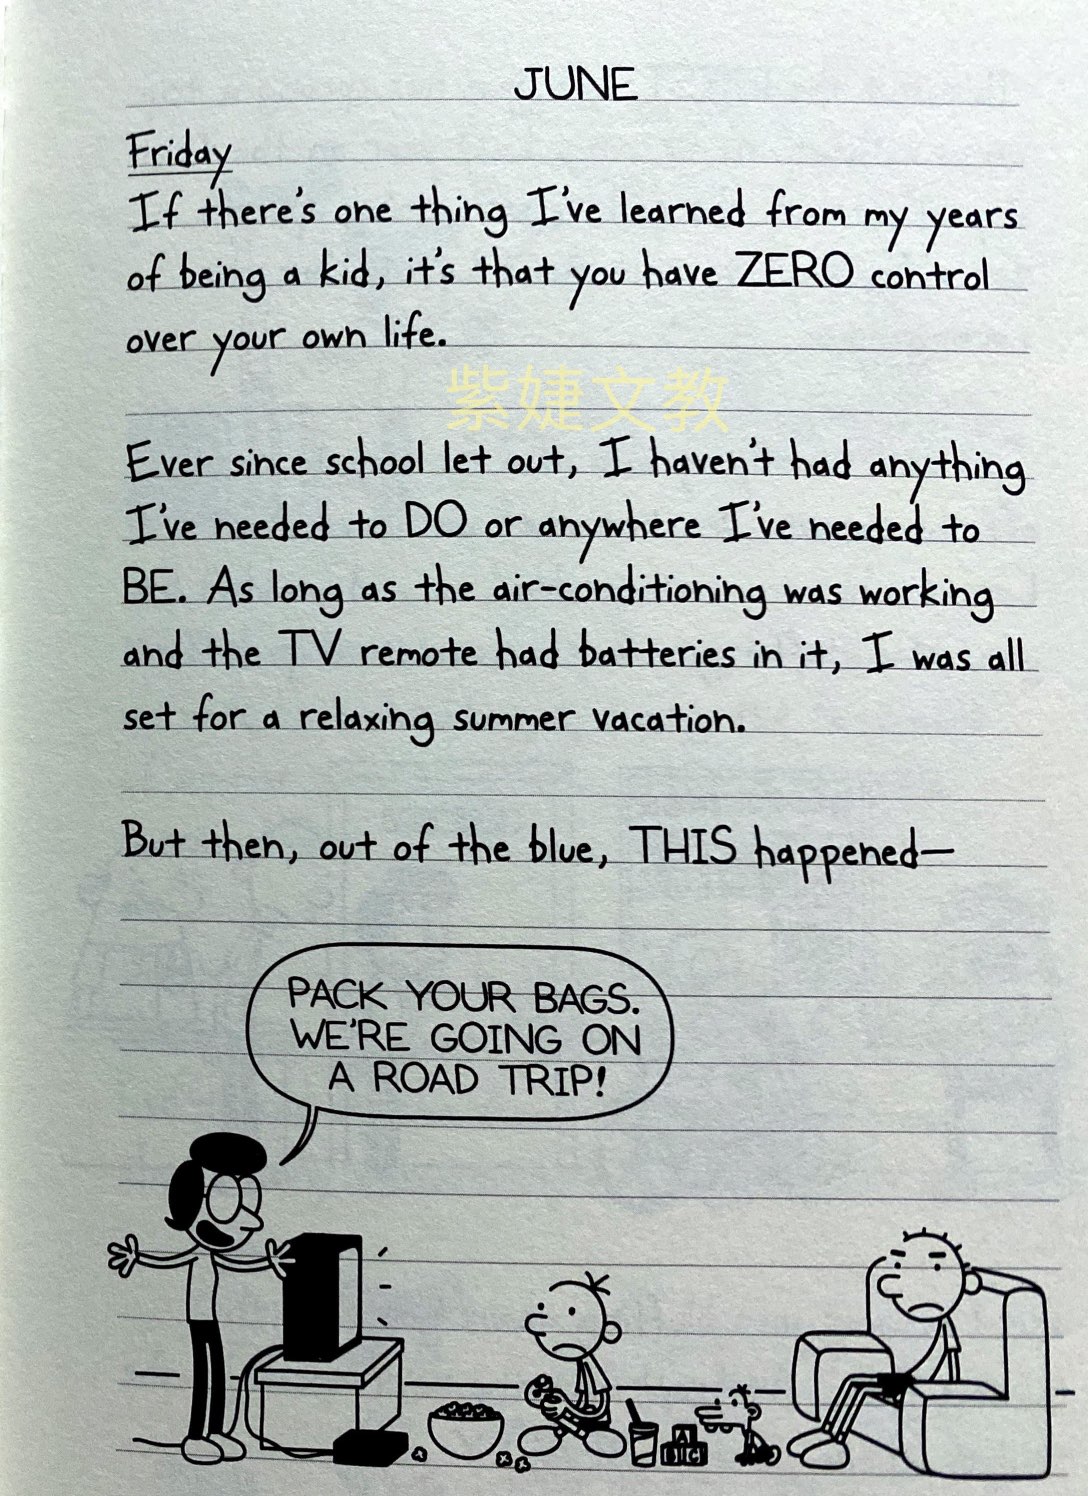 JUNE
Friday
If there's one thing I've learned from my years
of being a kid, it's that you have ZERO control
over your own life.
紫婕文教
Ever since school let out, I haven't had anything
I've needed to DO or anywhere I've needed to
BE. As long as the air-conditioning was working
and the TV remote had batteries in it, I was all
set for a relaxing summer vacation.
But then, out of the blue, THIS happened—
PACK YOUR BAGS.
WE'RE GOING ON
A ROAD TRIP!
A
B C